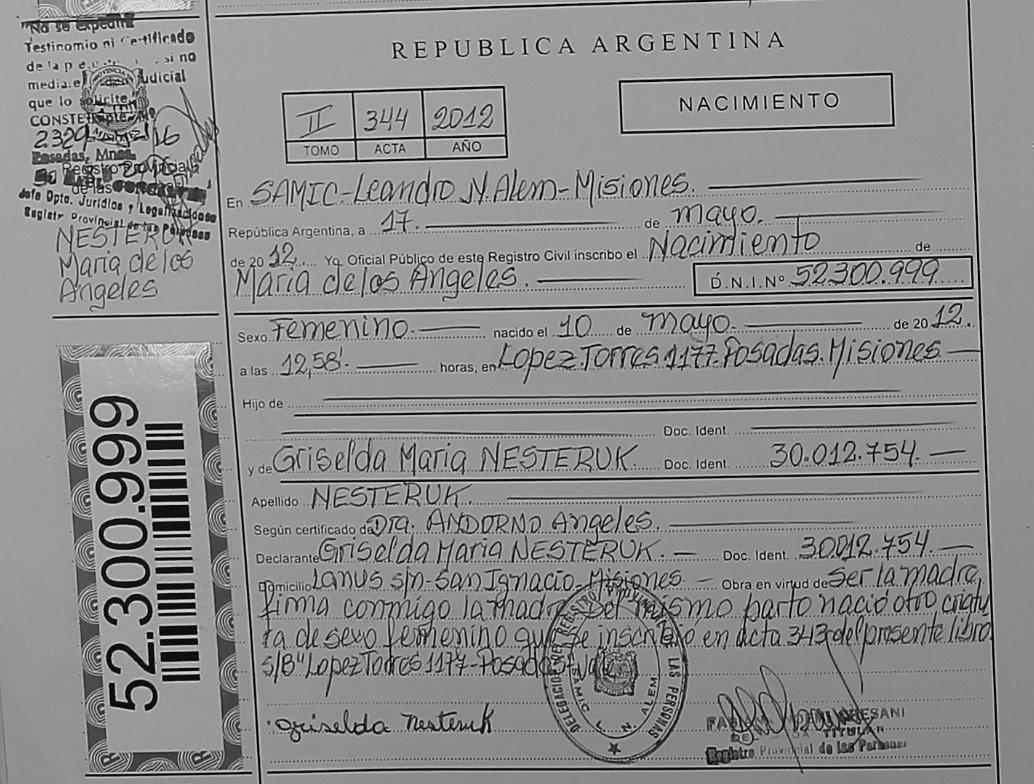 "No se expedirá
Testimonio ni Certificado
de la p si no
media Judicial
que lo solicite"
CONSTE
2329 16
Posadas, Mnes.
Registro Provincial
de las
Jefe Dpto. Jurídico y Legalizaciones
Registro Provincial de las Personas
NESTERUK
Maria de los
Angeles
52.300.999
REPUBLICA ARGENTINA
NACIMIENTO
II 344 2012
TOMO ACTA AÑO
En SAMIC-Leandro N. Alem-Misiones.
República Argentina, a 17. de mayo.
de 2012 Yo, Oficial Público de este Registro Civil inscribo el Nacimiento de
Maria de los Angeles. D.N.I.Nº 52.300.999
Sexo Femenino. nacido el 10 de mayo. de 2012.
a las 12,58'. horas, en Lopez Torres 1177 Posadas. Misiones
Hijo de
Doc. Ident.
y de Griselda Maria NESTERUK. Doc. Ident. 30.012.754.
Apellido NESTERUK.
Según certificado de Dra. ANDORNO Angeles.
Declarante Griselda Maria NESTERUK. Doc. Ident. 30.012.754.
Domicilio Lanus s/n-San Ignacio-Misiones Obra en virtud de ser la madre,
firma conmigo la madre. Del mismo parto nació otro criatu
ra de sexo femenino que se inscribió en acta 343 del presente libro.
s/B" Lopez Torres 1177-Posadas
DELEGACION DEL REGISTRO PROVINCIAL DE LAS PERSONAS
SAMIC L. N. ALEM
Griselda Nesteruk
TITULAR
Registro Provincial de las Personas